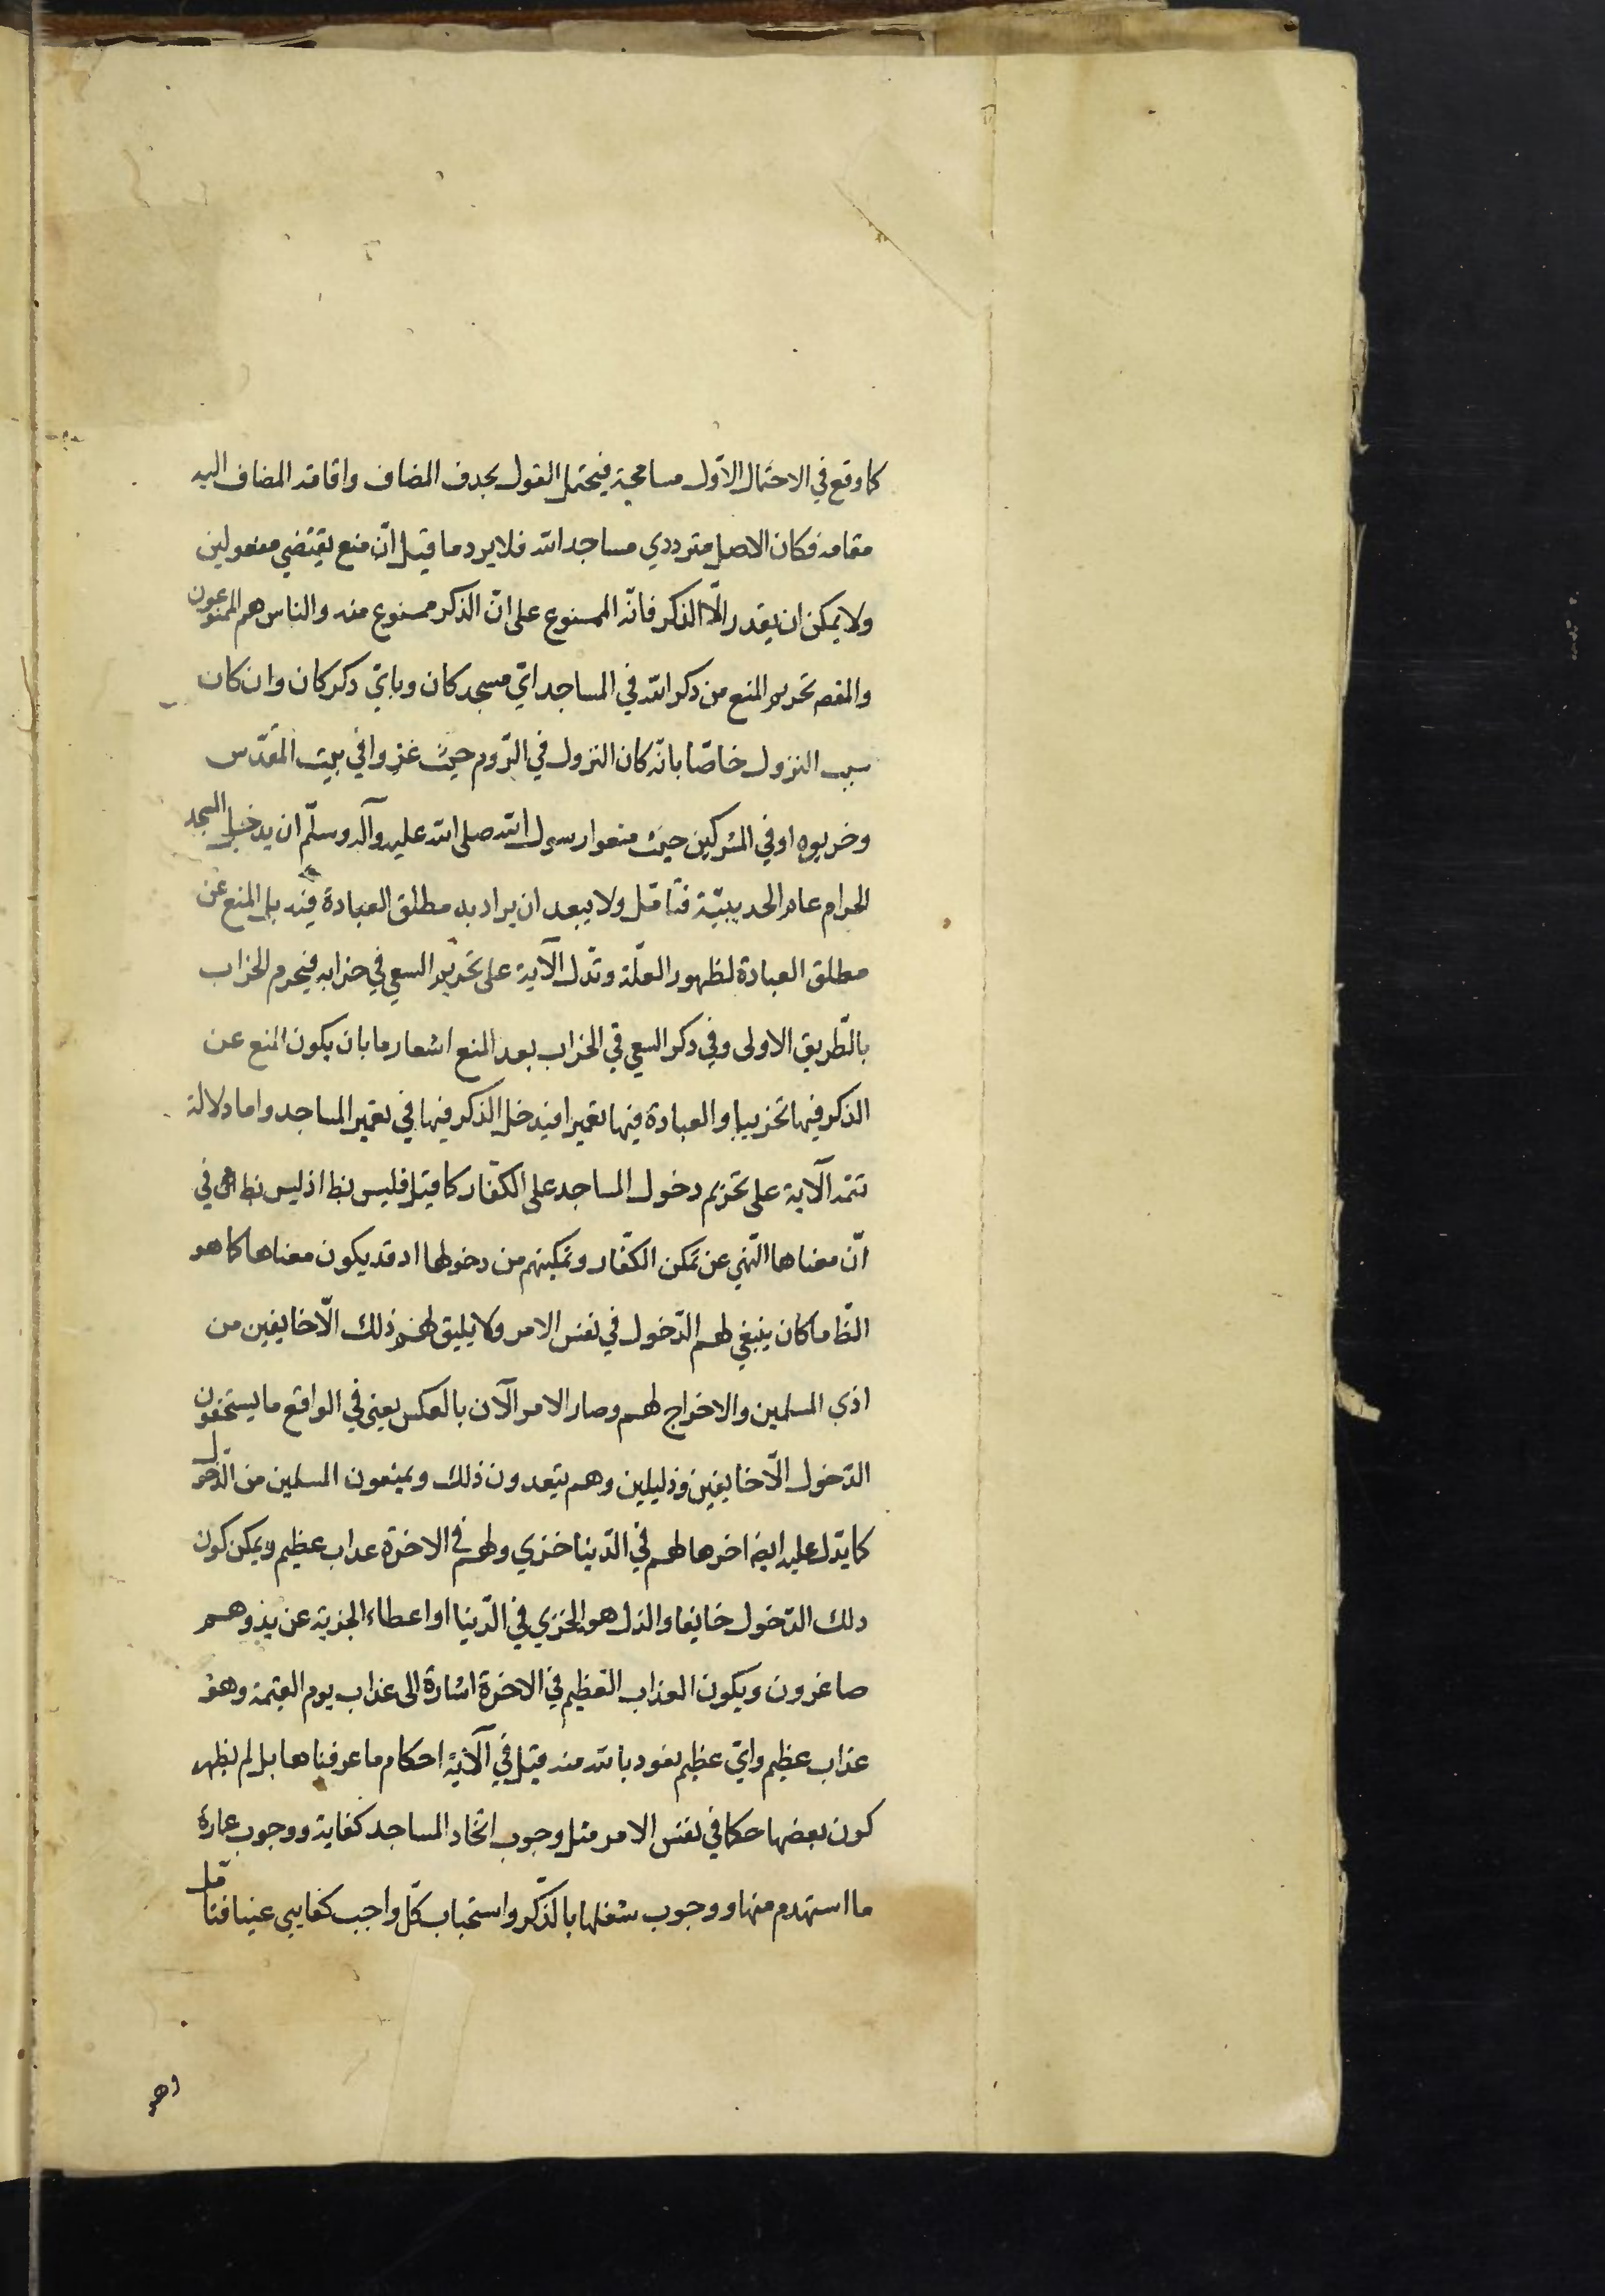 كما وقع في الاحتمال الاوّل مسامحة فيحتمل القول بحذف المضاف واقامة المضاف اليه
مقامه فكان الاصل مترددي مساجد الله فلا يرد ما قيل انّ منع يقتضي مفعولين
ولا يمكن ان يقدر الّا الذكر فانّه الممنوع على انّ الذكر ممنوع منه والناس هم الممنوعون
والمقصـ تحريم المنع من ذكر الله في المساجد ايّ مسجد كان وبايّ ذكر كان وان كان
سبب النزول خاصّا بانّه كان النزول في الرّوم حيث غزوا في بيت المقدّس
وخربوه او في المشركين حيث منعوا رسول الله صلى الله عليه وآله وسلّم ان يدخل المسجد
الحرام عام الحديبيّة فتامّل ولا يبعد ان يراد به مطلق العبادة فيه بل المنع عن
مطلق العبادة لظهور العلّة وتدلّ الآية على تحريم السعي في خرابه فيحرم الخراب
بالطّريق الاولى وفي ذكر السعي في الخراب بعد المنع اشعار ما بان يكون المنع عن
الذكر فيها تخريبا والعبادة فيها تعميرا فيدخل الذكر فيها في تعمير المساجد واما دلالة
تتمه الآية على تحريم دخول المساجد على الكفّار كما قيل فليس بظ اذ ليس بظاهر في
انّ معناها النّهي عن تمكن الكفّار وتمكينهم من دخولها اذ قد يكون معناها كما هو
الظّ ما كان ينبغي لهم الدّخول في نفس الامر ولا يليق لهم ذلك الّا خايفين من
اذى المسلمين والاخراج لهم وصار الامر الآن بالعكس يعني في الواقع ما يستحقون
الدّخول الّا خايفين وذليلين وهم يتعدون ذلك ويمنعون المسلمين من الدّخول
كما يدّل عليه ايضـ اخرها لهم في الدّنيا خزي ولهم في الاخرة عذاب عظيم ويمكن كون
ذلك الدّخول خايفا والذل هو الخزي في الدّنيا او اعطاء الجزية عن يد وهم
صاغرون ويكون العذاب العظيم في الاخرة اشارة الى عذاب يوم القيمة وهو
عذاب عظيم وايّ عظيم نعوذ بالله منه قيل في الآية احكام ما عرفناها بل لم يظهر
كون بعضها حكما في نفس الامر مثل وجوب اتخاذ المساجد كفاية ووجوب عمارة
ما استهدم منها ووجوب شغلها بالذّكر واستحباب كلّ واجب كفايي عينا فتامّل
وهو